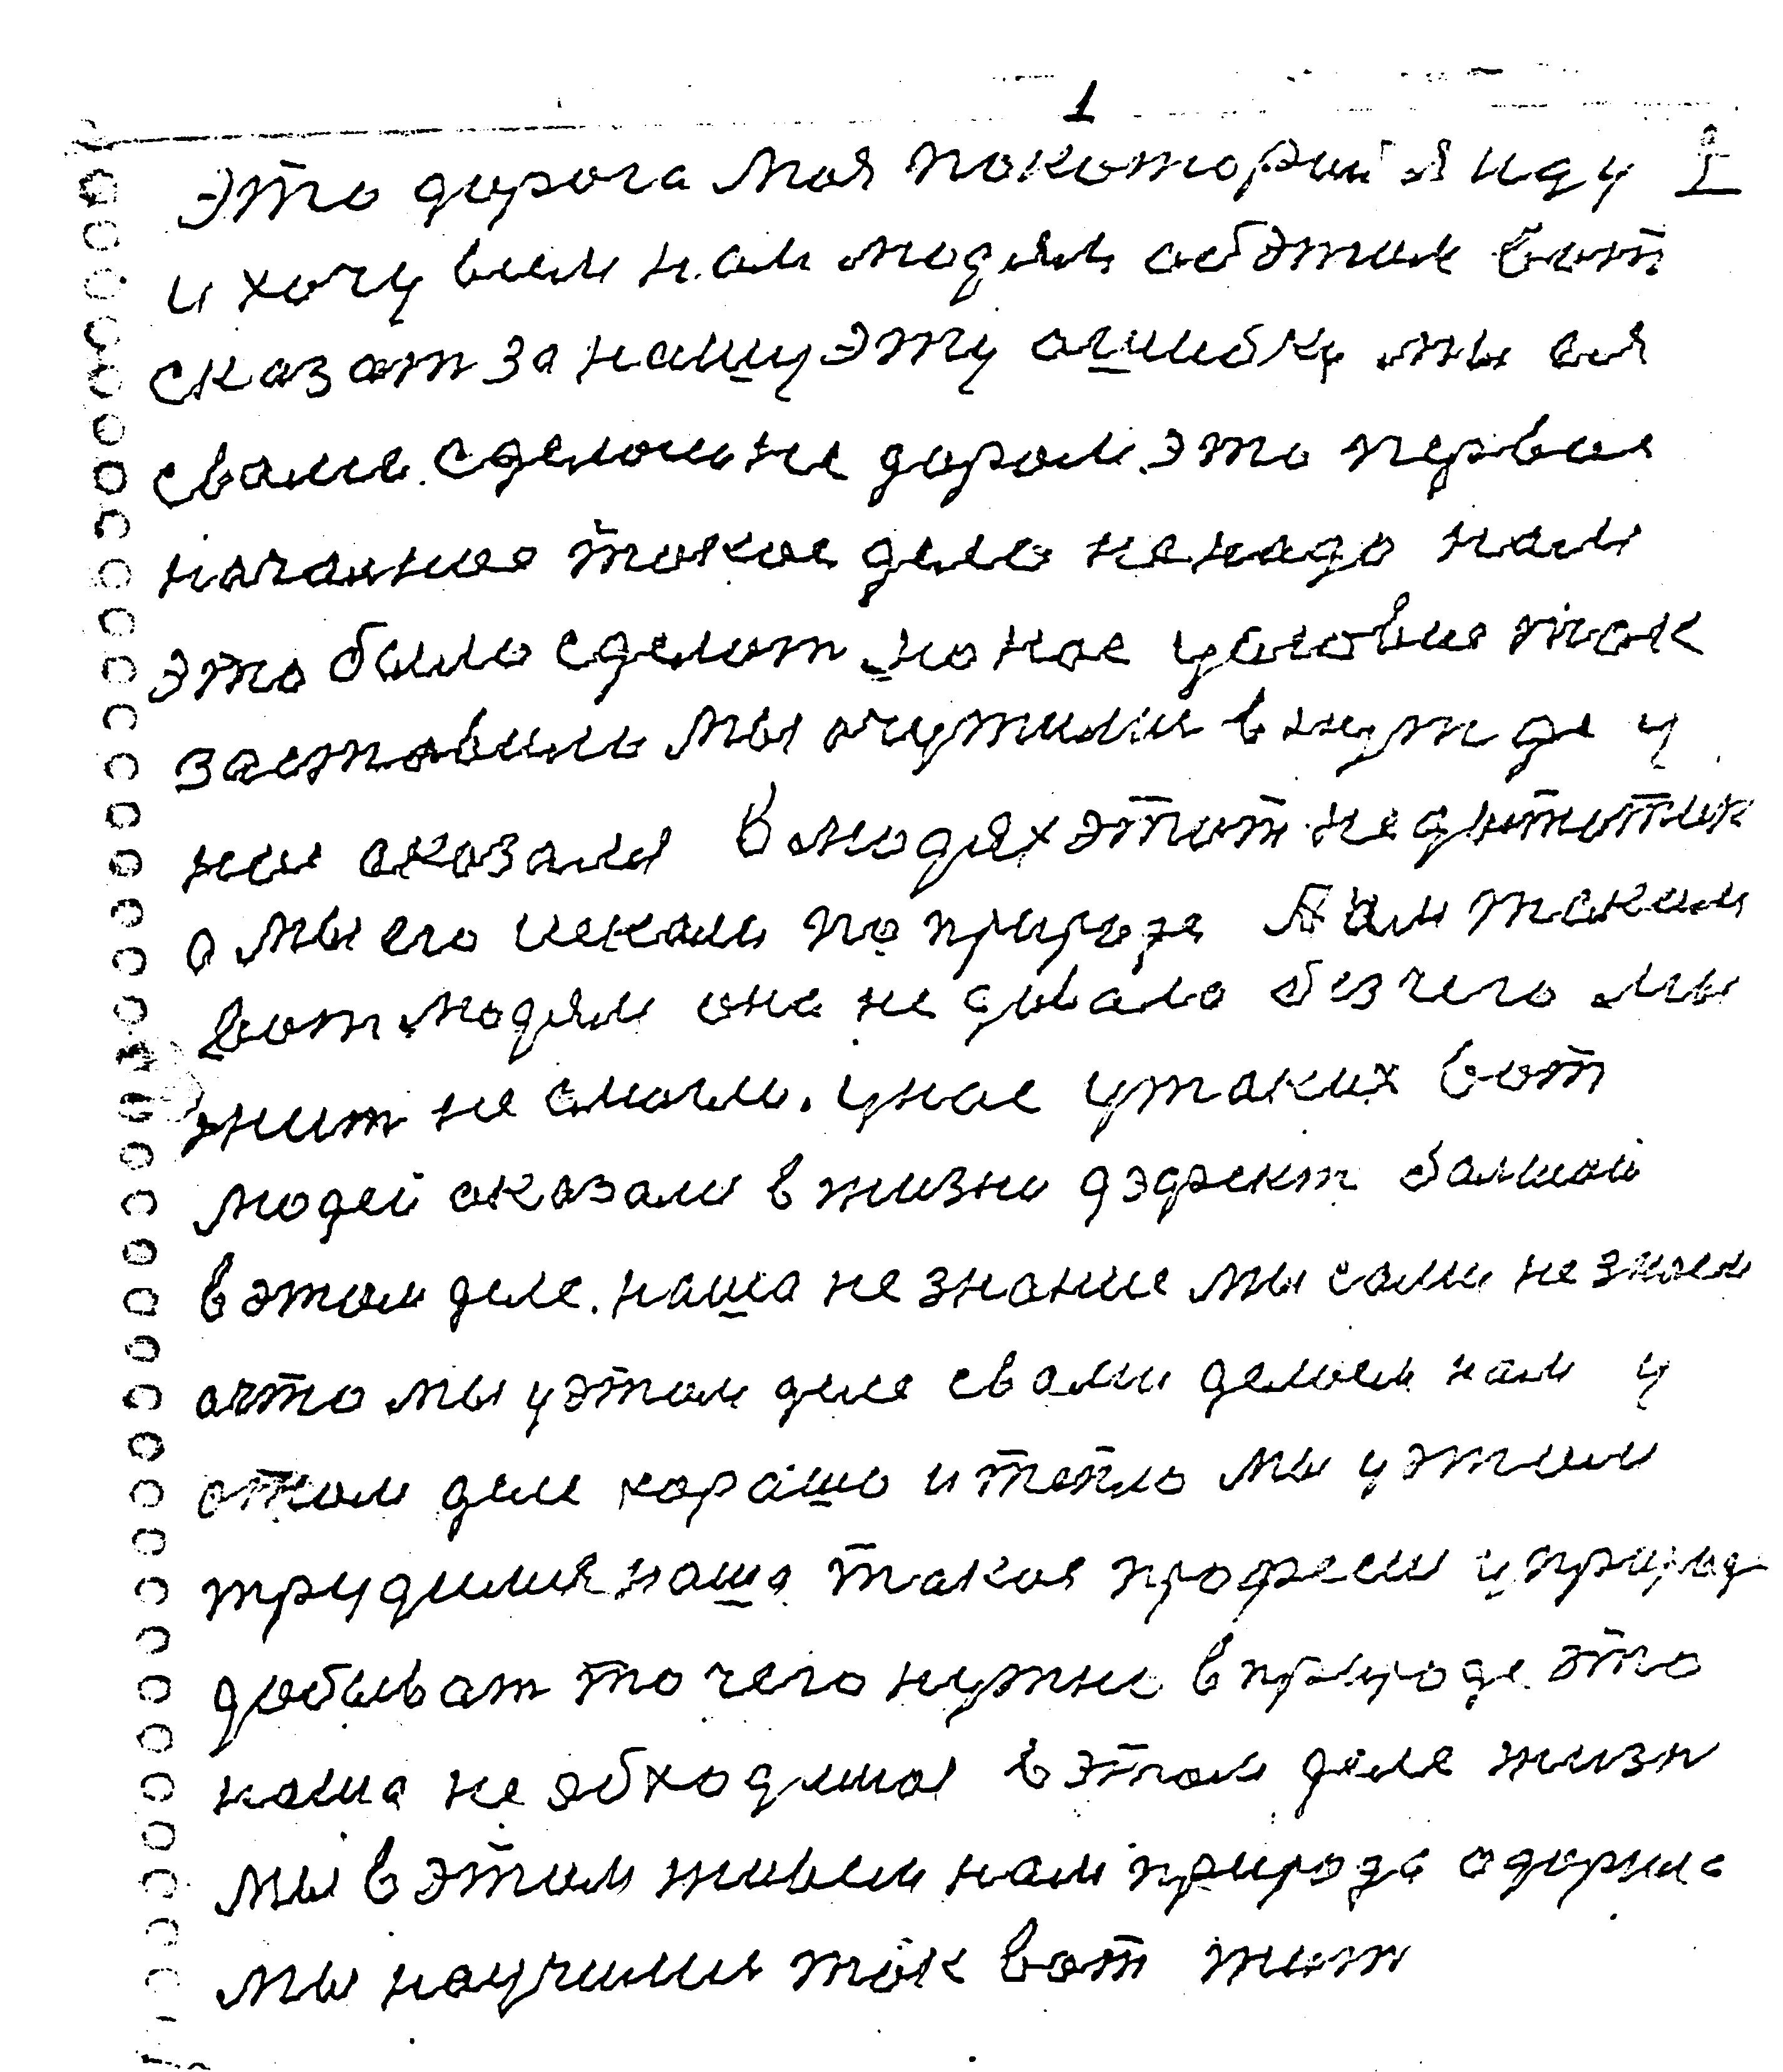 1
Это дорога моя покоторий я иду I
и хочу всем нам людям обэтим вот
сказат за нашу эту ошибку мы ея
свами. сделали не даром. это первае
начанное такое дело ненадо нам
это было сделат но нас условие так
заставили мы очутили в нужде у
ниы оказалы в людях этот недостаток
а мы его искали по природе нам таким
вот людям она не давало без чего мы
жит не смогли. унас утаких вот
людей оказали в жизни дэфект балшой
в этом деле. наша не знание мы сами не знаем
ачто мы уэтом деле свами делаем нам у
этом деле харашо и тепло мы уэтим
трудимся наша такая професи уприроде
добыват то чего нужно в природе. это
наша не обходимая в этом деле жизн
мы в этом живем нам природа одарила
мы научили так вот жит